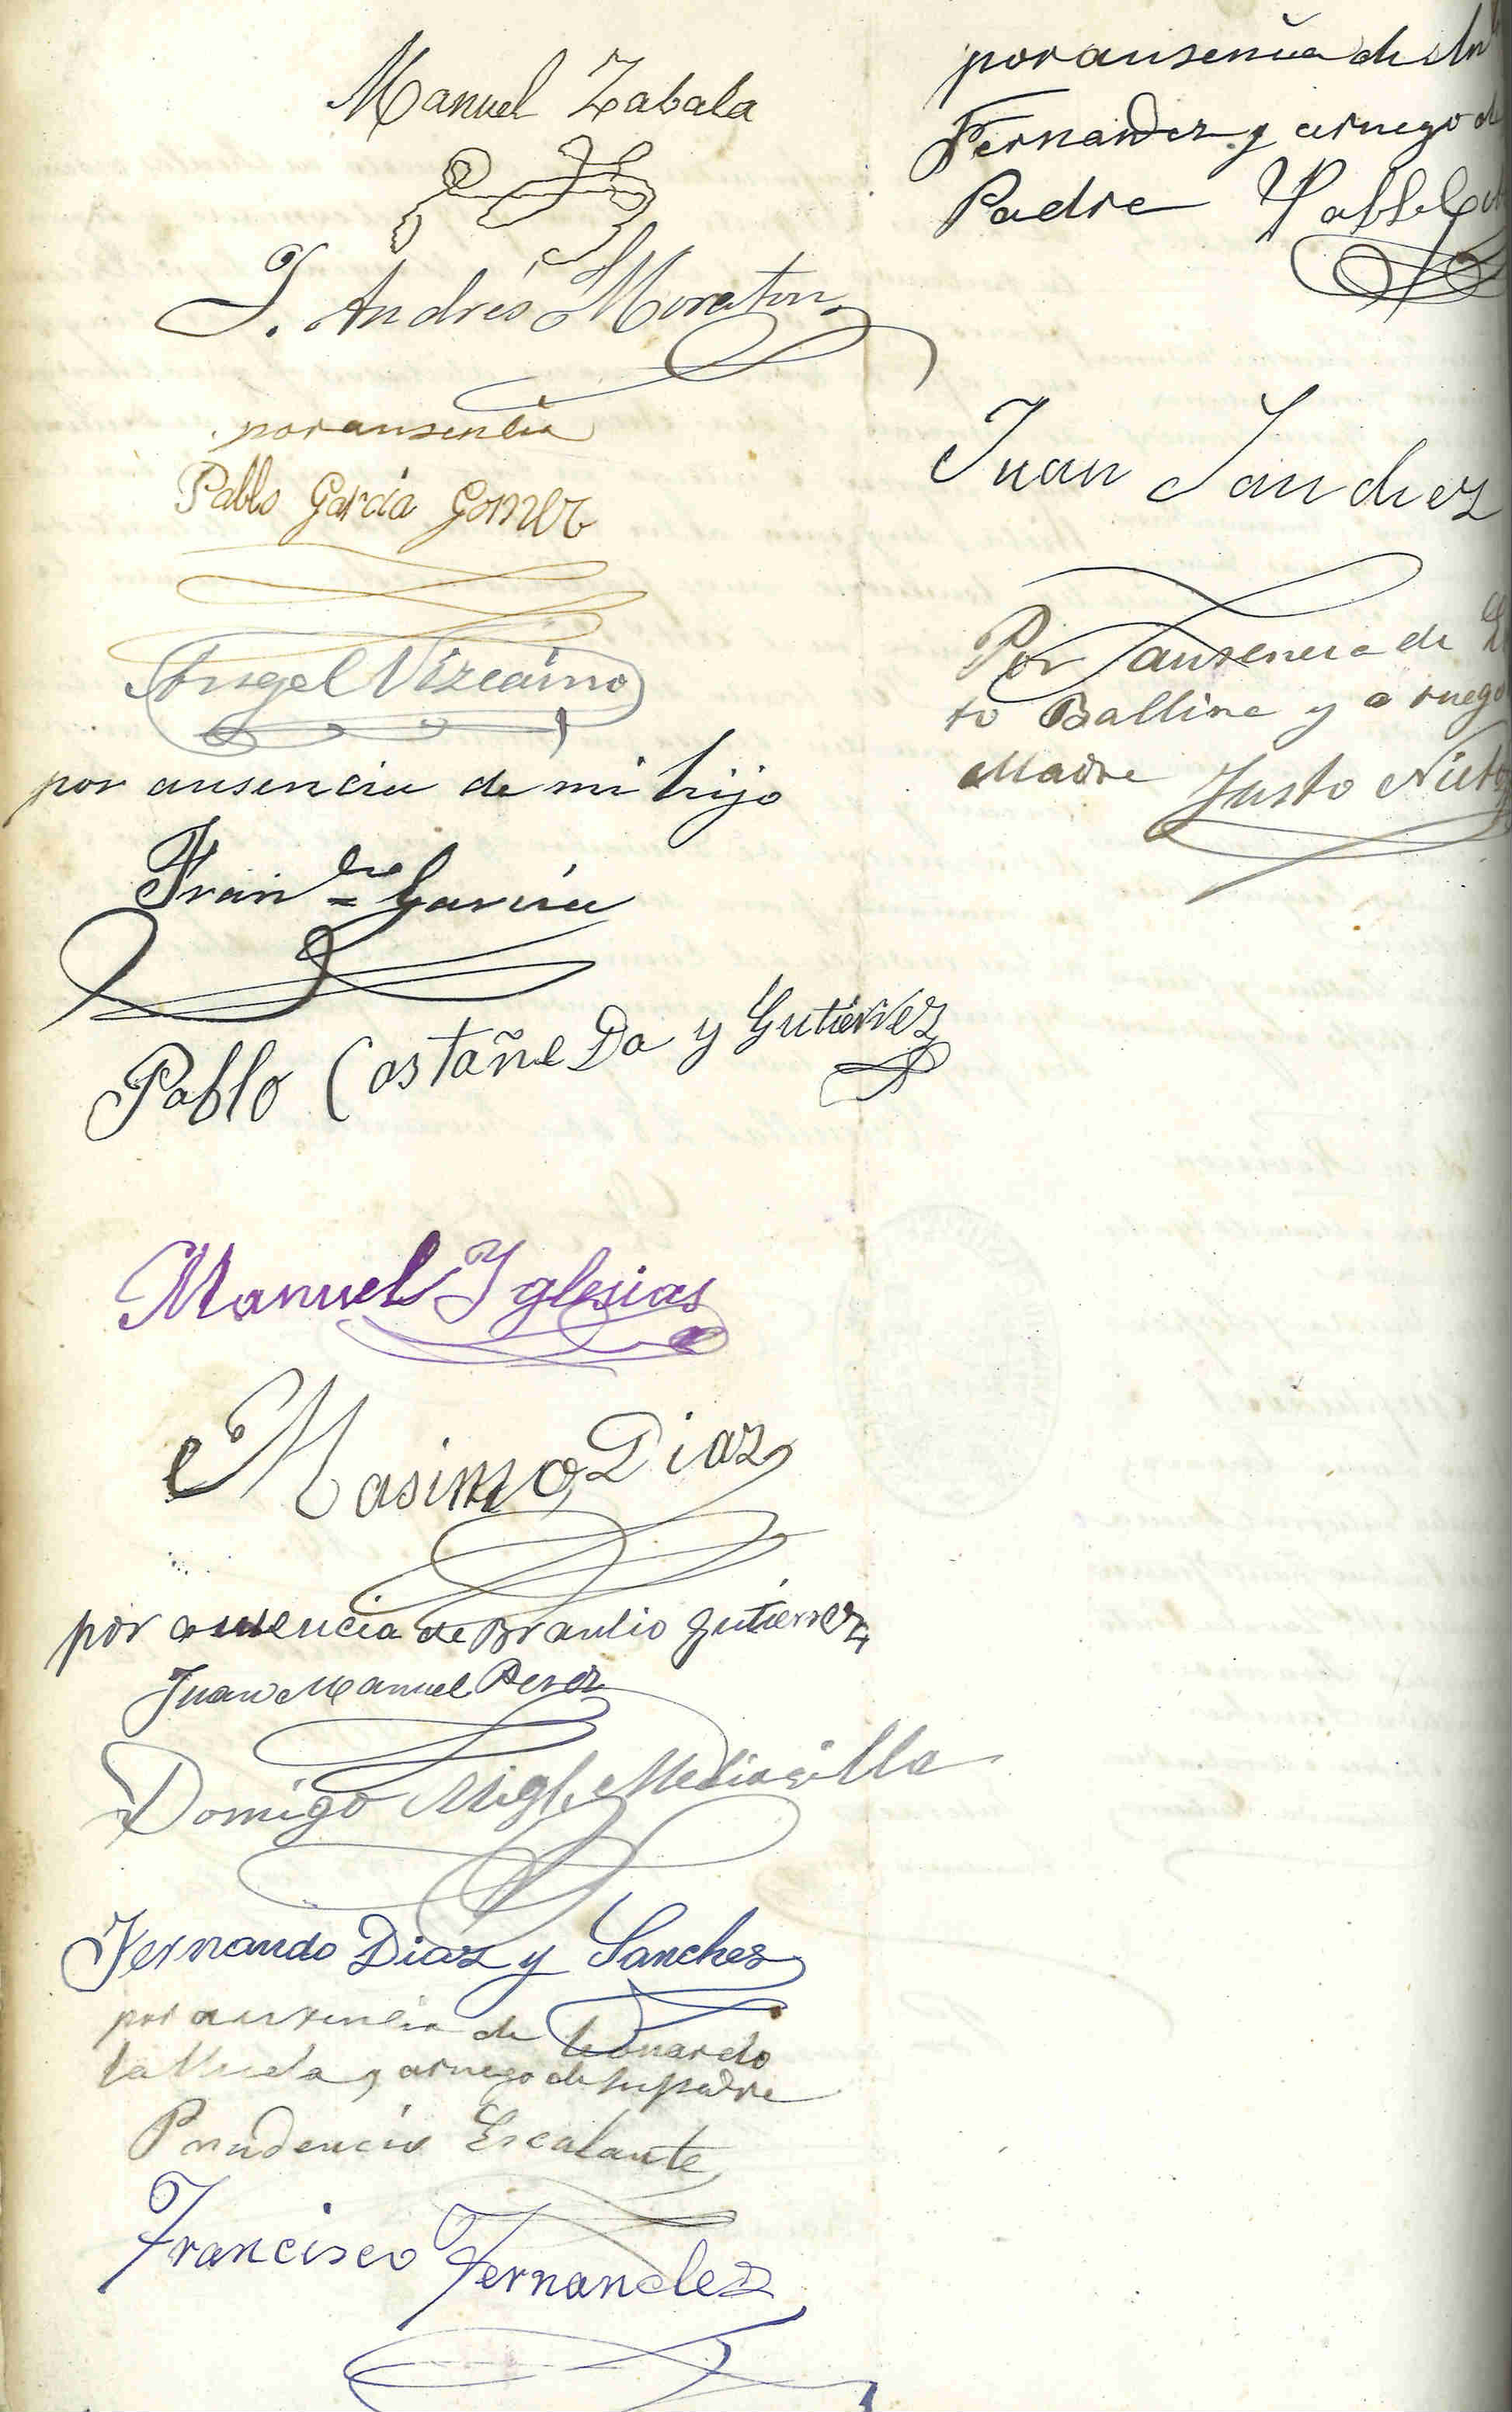 Manuel Zabala
J. Andrés Moraton
por ausencia
Pablo García Gomez
Angel Vizcaino
por ausencia de mi hijo
Fran.co García
Pablo Castañeda y Gutiérrez
Manuel Iglesias
Masimo Diaz
por ausencia de Braulio Gutierrez
Juan Manuel Perez
Domigo Migl. Mediavilla
Fernando Diaz y Sanchez
por ausencia de Leonardo
y aruego de su padre
Prudencio Escalante
Francisco Fernandez
por ausencia de
Fernandez y aruego
Padre Pablo
Juan Sanchez
Por ausencia de
to Balline y a ruego
Madre Justo Nieto